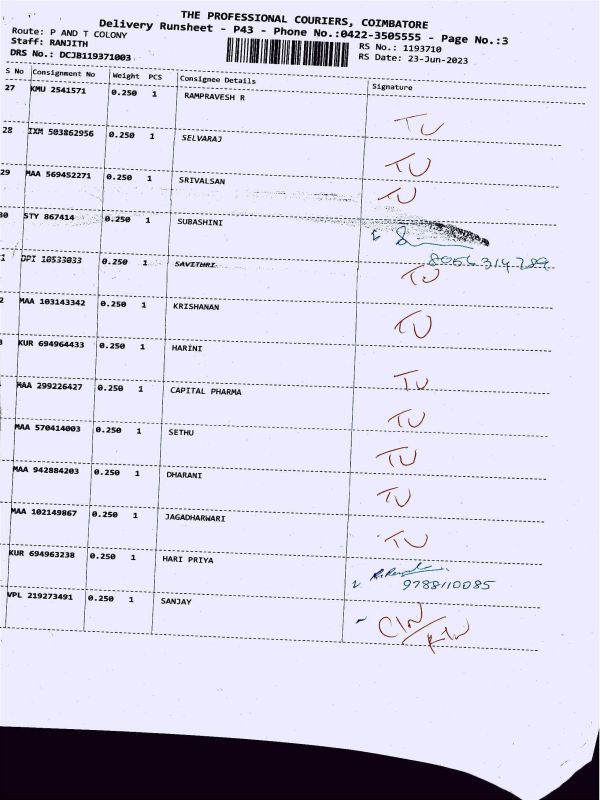 THE PROFESSIONAL COURIERS, COIMBATORE
Delivery Runsheet - P43 - Phone No.:0422-3505555 - Page No.:3
Route: P AND T COLONY
Staff: RANJITH
DRS No.: DCJB119371003
RS No.: 1193710
RS Date: 23-Jun-2023
S No Consignment No Weight PCS Consignee Details Signature
27 KMU 2541571 0.250 1 RAMPRAVESH R TU
28 IXM 503862956 0.250 1 SELVARAJ TU
29 MAA 569452271 0.250 1 SRIVALSAN TU
30 STY 867414 0.250 1 SUBASHINI
8056314789
1 OPI 10533033 0.250 1 SAVITHRI TU
2 MAA 103143342 0.250 1 KRISHANAN TU
3 KUR 694964433 0.250 1 HARINI TU
MAA 299226427 0.250 1 CAPITAL PHARMA TU
MAA 570414003 0.250 1 SETHU TU
MAA 942884203 0.250 1 DHARANI TU
MAA 102149867 0.250 1 JAGADHARWARI TU
KUR 694963238 0.250 1 HARI PRIYA
9788110085
VPL 219273491 0.250 1 SANJAY